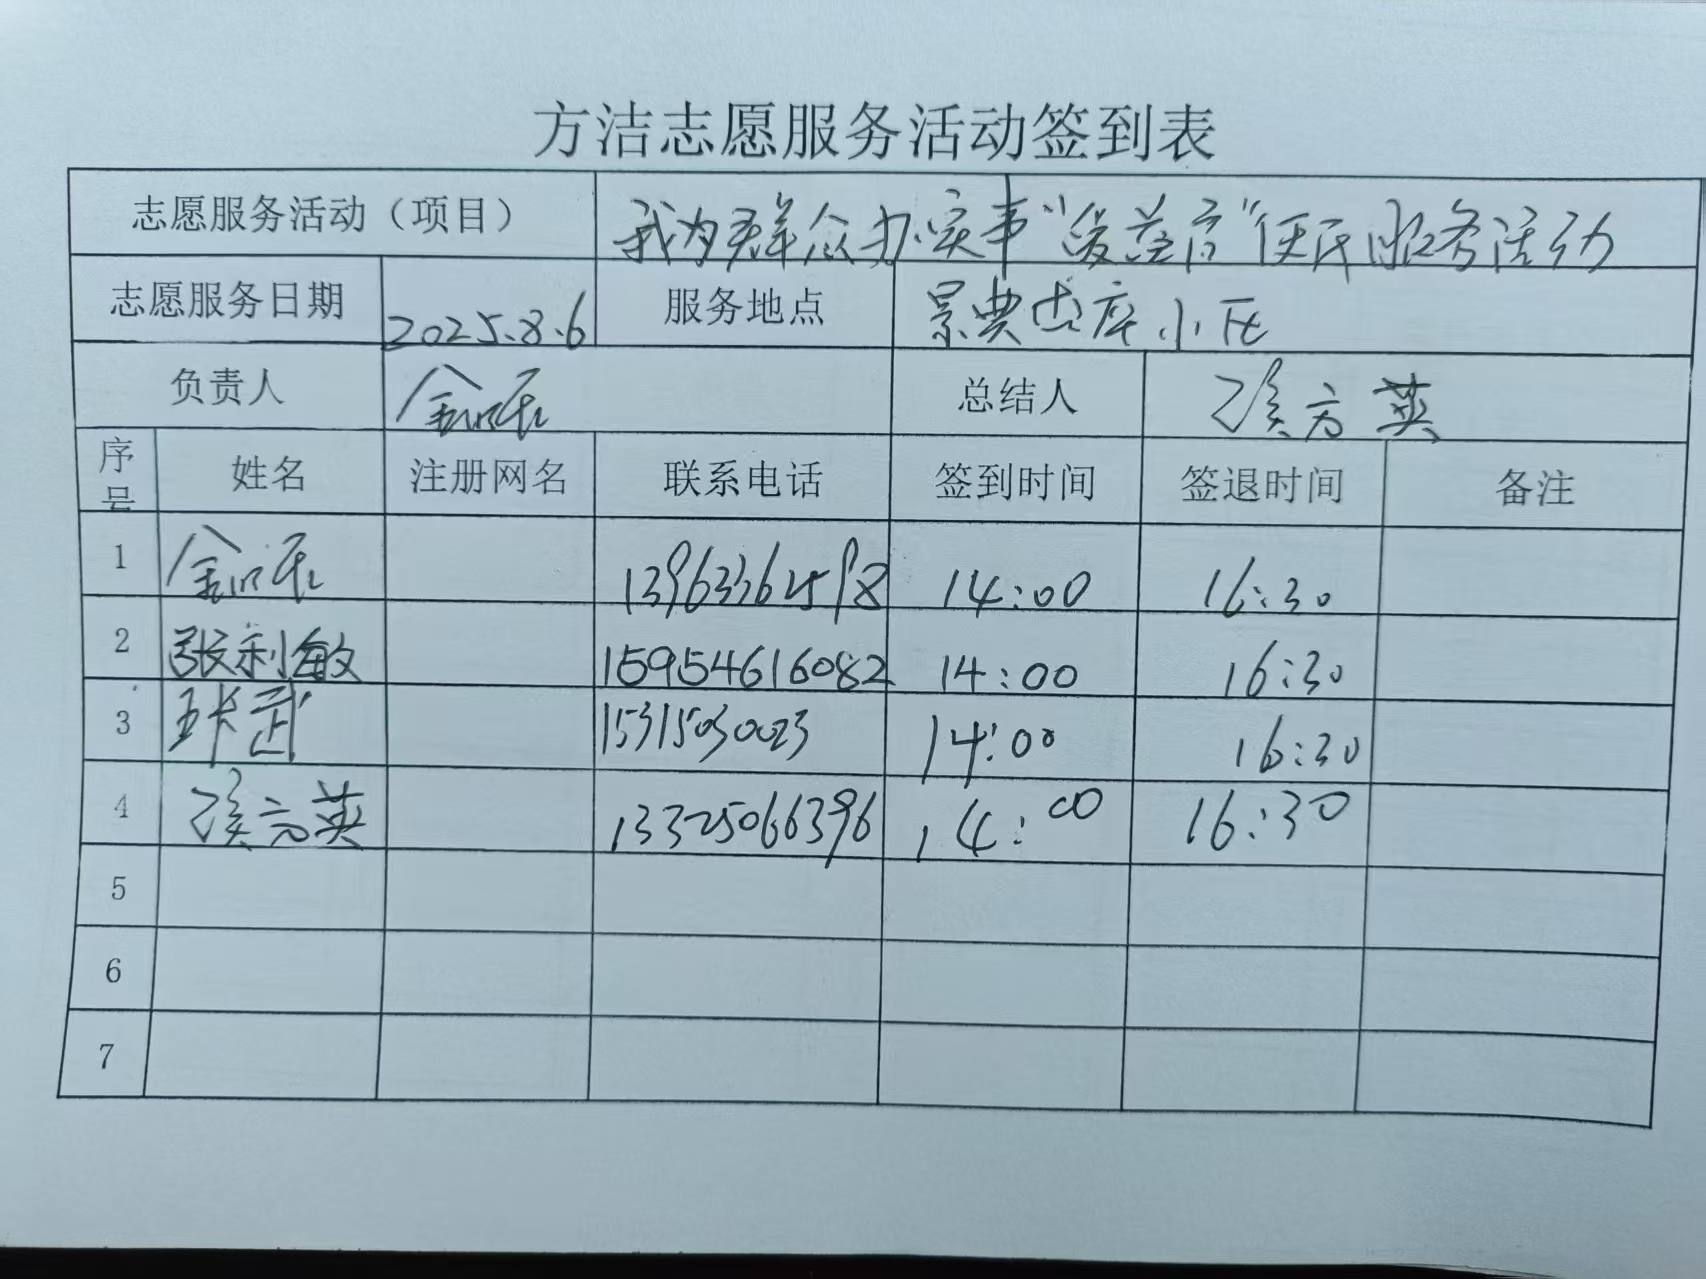 方洁志愿服务活动签到表
志愿服务活动（项目） 我为群众办实事“爱益店”便民服务活动
志愿服务日期 2025.8.6 服务地点 景典世库小区
负责人 总结人 侯方英
序号 姓名 注册网名 联系电话 签到时间 签退时间 备注
1 13963362598 14:00 16:30
2 张利敏 15954616082 14:00 16:30
3 武 15315030023 14:00 16:30
4 侯方英 13325066396 14:00 16:30
5
6
7